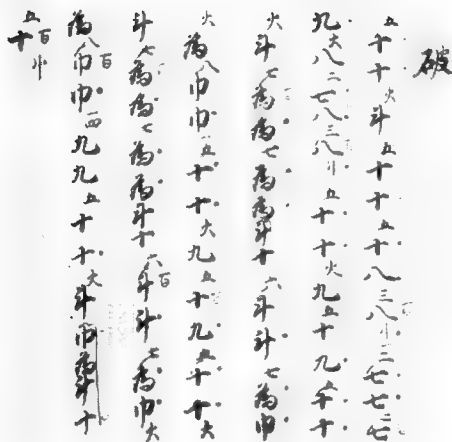 破
五十十火斗五十十五十八三八二七七二七
九大八二七八三八五十十火九五十九五十十
火斗七為為七為為斗十六斗斗七為巾
火為八巾巾五十十大九五十九五十十大
斗七為為七為為斗十六百斗斗七為巾大
為八百巾巾四九九五十十大斗巾為斗十
五十百